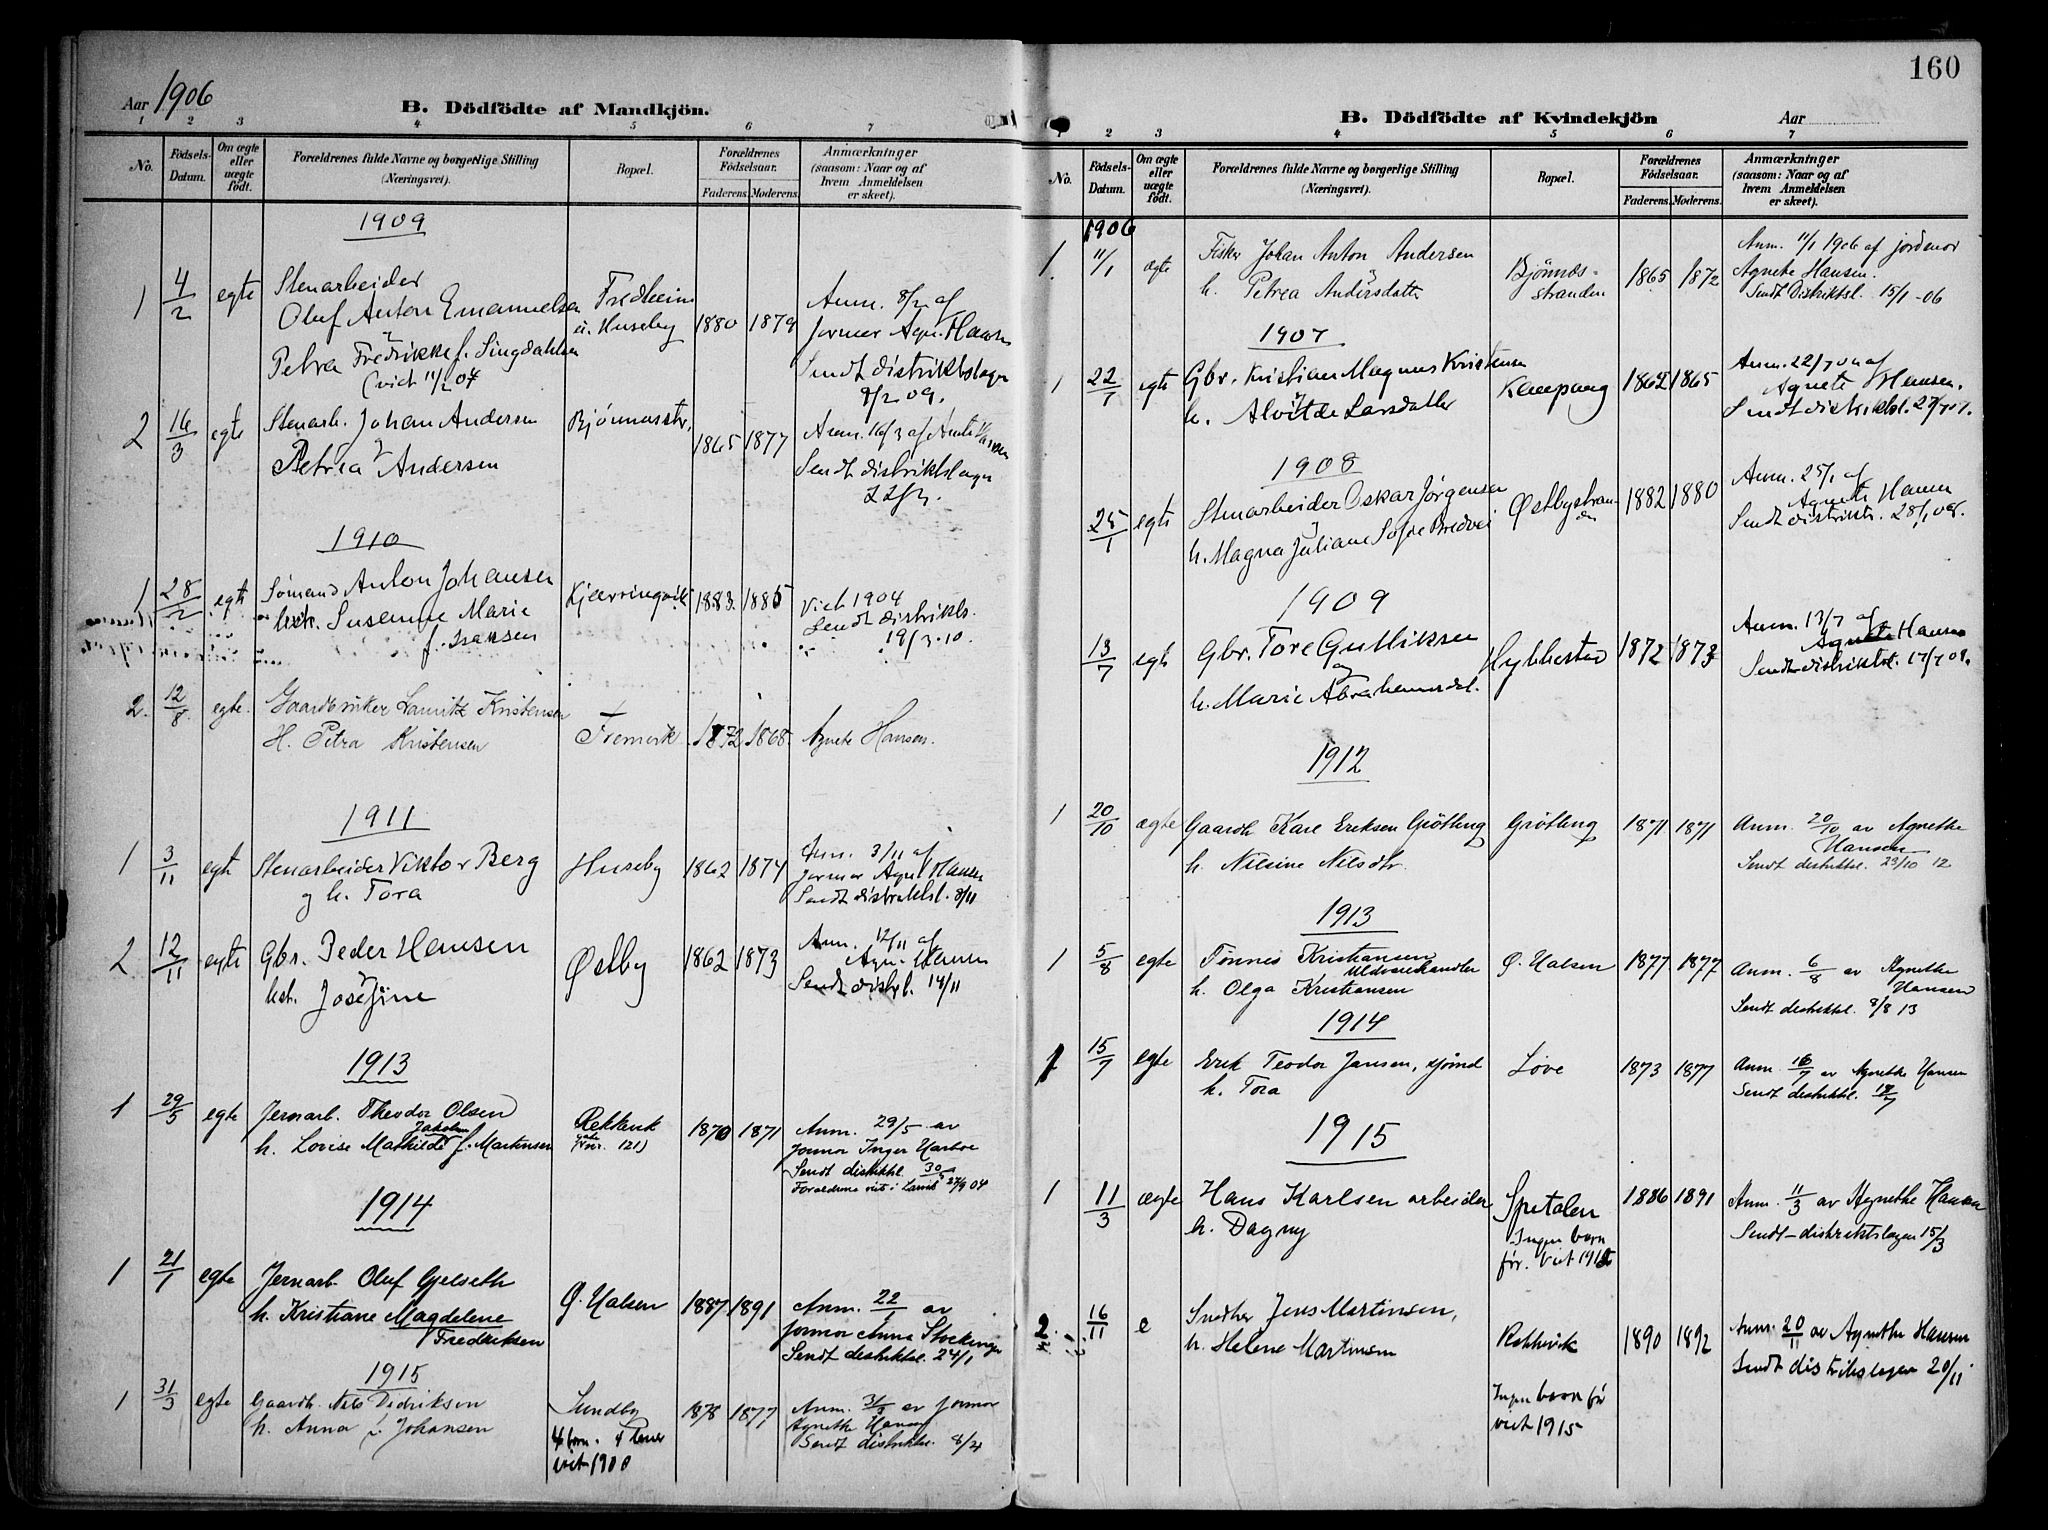 Aar 1906
B. Dödfödte af Mandkjön.
1 2 3 4 5 6 7
No.
Födsels-Datum.
Om ægte eller uægte födt.
Forældrenes fulde Navne og borgerlige Stilling (Næringsvei).
Bopæl.
Forældrenes Födselsaar.
Faderens. Moderens.
Anmærkninger (saasom: Naar og af hvem Anmeldelsen er skeet).
1909
1 4/2 egte Stenarbeider
Oluf Anton Emanuelsen
Petra Fredrikke f. Singdahlsen
(viet 11/2 07
Fredheim
u. Huseby
1880 1879
Anm. 8/2 af
jormor Agn. Hansen
Sendt distriktslægen
9/2 09.
2 16/3 egte Stenarb. Johan Andersen
Petrea Andersen
Bjönnesstr.
1865 1877
Anm. 16/3 af
Sendt distriktslægen
22/3.
1910
1 28/2 egte Sømand Anton Johansen
hstr. Susanne Marie
f. Isaksen
Kjærringvik
1883. 1885
Viet 1904
Sendt distriktsl.
19/3.10.
2. 12/8. egte. Gaardbruker Lauritz Kristensen
H. Petra Kristensen
1872 1868.
Agnete Hansen.
1911
1 3/11 egte Stenarbeider Viktor Berg
og h. Tora
Huseby
1862 1874
Anm. 3/11 af
jormor Agnt Hansen
Sendt distriktsl. 8/11
2 12/11 egte Gbr. Peder Hansen
hst. Josefine
Østby
1862 1873
Anm. 12/11 af
Agn. Hansen
Sendt distrl. 14/11
1913
1 29/5 egte Jernarb. Theodor Olsen
h. Lovise Mathilde Jakobin f. Martinsen
1870 1871
Anm. 29/5 av
jormor Inger Harboe
Sendt distriktsl. 30/5
Forældrene viet i Larvik 27/9 04
1914
1 21/1 egte Jernarb. Oluf Gjelseth
h. Kristiane Magdelene
Fredriksen
Ø. Halsen
1887 1891
Anm. 22/1 av
jormor Anna Stockinger
Sendt distriktsl. 24/1
1915
1 31/3 egte Gaardb. Nils Didriksen
h. Anna f. Johansen
Sundby
4 børn.
viet 1900
1878 1877
Anm. 31/3 av jormor
Agnethe Hansen
Sendt distriktsl. 8/4
160
B. Dödfödte af Kvindekjön
Aar
1 2 3 4 5 6 7
No.
Födsels-Datum.
Om ægte eller uægte födt.
Forældrenes fulde Navne og borgerlige Stilling (Næringsvei).
Bopæl.
Forældrenes Födselsaar.
Faderens. Moderens.
Anmærkninger (saasom: Naar og af hvem Anmeldelsen er skeet).
1906
1. 11/1 ægte Fisker Johan Anton Andersen
h. Petrea Andersdatter
Bjönnes-
stranden
1865 1872
Anm. 11/1 1906 af jordemor
Agnete Hansen.
Sendt Distriktsl. 15/1-06
1907
1 22/7 egte Gbr. Kristian Magnus Kristensen
h. Alvilde Larsdatter
1862 1865
Anm. 22/7 07 af
Agnete Hansen.
Sendt distriktsl. 27/7 07.
1908
25/1 egte Stenarbeider Oskar Jørgensen
h. Magna Juliane Sofie Bredvei
Østbystran-
den
1882 1880
Anm. 25/1 af
Agnete Hansen
Sendt distriktsl. 28/1 08.
1909
13/7 egte Gbr. Tore Gulliksen
og
h. Marie Abrahamsdat.
Hybbestad
1872 1873
Anm. 13/7 af
Agnete Hansen
Sendt distriktsl. 17/7 09.
1912
1 20/10 ægte Gaardb. Kare Eriksen Grötting
h. Nilsine Nilsdtr.
Grötting
1871 1871
Anm. 20/10 av Agnethe
Hansen
Sendt distriktsl. 23/10 12
1913
1 5/8 egte Tönnes Kristiansen
Uldvarehandler
h. Olga Kristiansen
Ø. Halsen
1877 1877
Anm. 6/8 av Agnethe
Hansen
Sendt distriktsl. 8/8 13
1914
1 15/7 egte Erik Teodor Jansen, sjömd
h. Tora
Löve
1873 1877
Anm. 16/7 av Agnethe Hansen
Sendt distriktsl. 18/7
1915
1 11/3 ægte Hans Karlsen arbeider
h. Dagny
Spetalen
Ingen barn
før. viet 1915
1886 1891
Anm. 11/3 av Agnethe Hansen
Sendt distriktslægen 15/3
2 16/11 e Snedker Jens Martinsen,
h. Helene Martinsen
Rekkevik
Ingen barn før
viet 1915
1890 1892
Anm. 20/11 av Agnethe Hansen
Sendt distriktslægen 20/11